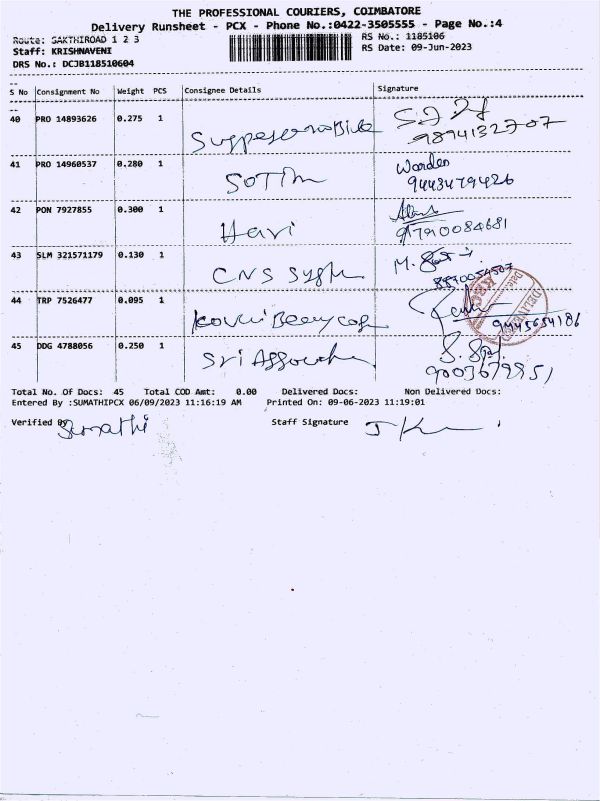 THE PROFESSIONAL COURIERS, COIMBATORE
Delivery Runsheet - PCX - Phone No.:0422-3505555 - Page No.:4
Route: SAKTHIROAD 1 2 3
RS No.: 1185106
Staff: KRISHNAVENI
RS Date: 09-Jun-2023
DRS No.: DCJB118510604
S No Consignment No Weight PCS Consignee Details Signature
40 PRO 14893626 0.275 1
9894132707
41 PRO 14960537 0.280 1 Warden
9443479426
42 PON 7927855 0.300 1 Hari
9790084681
43 SLM 321571179 0.130 1 CNS
44 TRP 7526477 0.095 1
DELIVERED
45 DDG 4788056 0.250 1 Sri
Total No. Of Docs: 45 Total COD Amt: 0.00 Delivered Docs: Non Delivered Docs:
Entered By :SUMATHIPCX 06/09/2023 11:16:19 AM Printed On: 09-06-2023 11:19:01
Verified By Sumathi Staff Signature